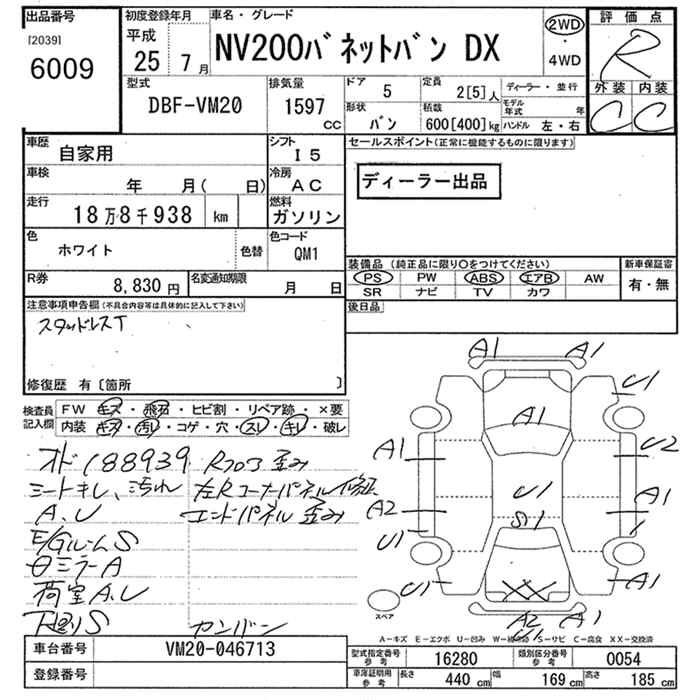 出品番号
[2039]
6009
初度登録年月
平成
25年 7月
車名・グレード
NV200バネットバン DX
2WD
・
4WD
評価点
R
外装 内装
C C
型式
DBF-VM20
排気量
1597
CC
ドア
5
定員
2[5]人
ディーラー・並行
形状
バン
積数
600[400]kg
モデル年式 年
ハンドル 左・右
車歴
自家用
シフト
I5
車検
年 月( 日)
冷房
AC
走行
18万8千938 km
燃料
ガソリン
色
ホワイト
色替
色コード
QM1
R券
8,830円
名変通知期限
月 日
セールスポイント(正常に機能するものに限ります)
ディーラー出品
装備品(純正品に限り○をつけてください)
PS PW ABS エアB AW
SR ナビ TV カワ
新車保証書
有・無
後日品
注意事項申告欄(不具合内容等は具体的に記入して下さい)
スタッドレスT
修復歴 有〔箇所 〕
検査員記入欄
FW キズ・飛石・ヒビ割・リペア跡・×要
内装 キズ・汚レ・コゲ・穴・スレ・キレ・破レ
オド188939 Rフロア歪み
シートキレ、汚れ 左Rコーナーパネル修正
A.U エンドパネル歪み
E/GルームS
ミラーA
荷室A.U
カンバン
A1 A1
U1
A1
A1 U2
U1
A2 A1
S1
U1
U1 A1
スペア
A2
U1
A－キズ E－エクボ U－凹み W－補修跡 S－サビ C－腐食 XX－交換済
車台番号
VM20-046713
登録番号
型式指定番号
参考
16280
類別区分番号
参考
0054
車庫証明用
参考
長さ 440 cm 幅 169 cm 高さ 185 cm